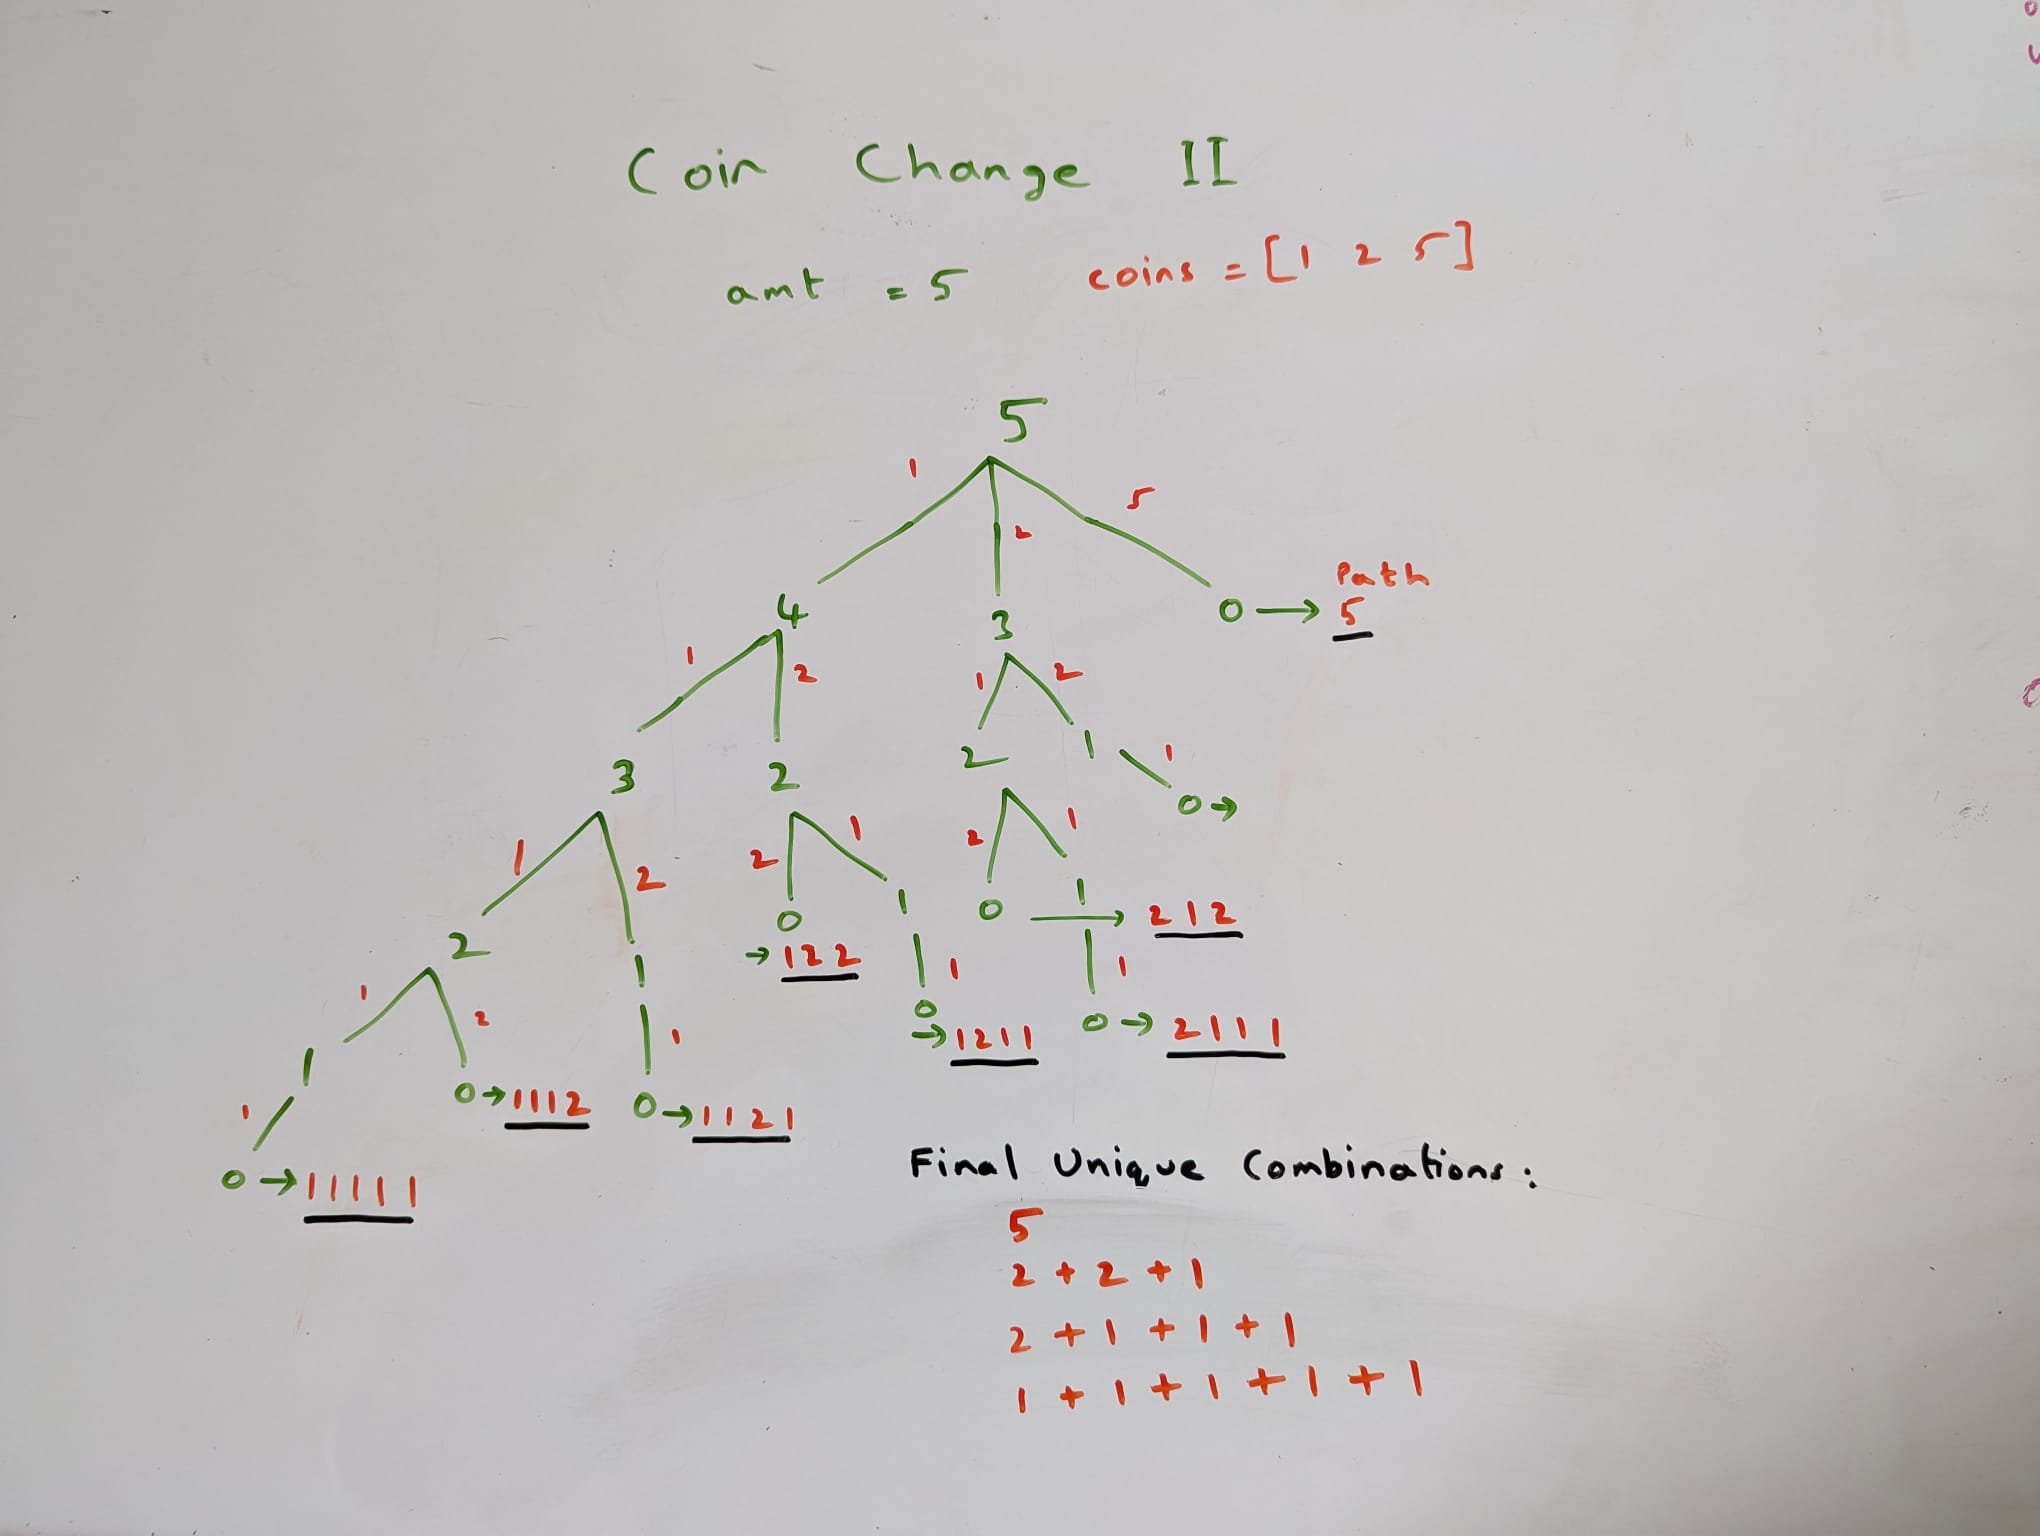 Coin Change II
amt = 5 coins = [1 2 5]
5
1 2 5
4 3 0 → Path
5
1 2 1 2
3 2 2 1 1
0 →
1 2 2 1 2 1
2 1 0 1 0 1 → 212
→ 122
1 2 1 1 1
1 0 → 1112 0 → 1121 0 → 1211 0 → 2111
1
0 → 11111
Final Unique Combinations:
5
2 + 2 + 1
2 + 1 + 1 + 1
1 + 1 + 1 + 1 + 1